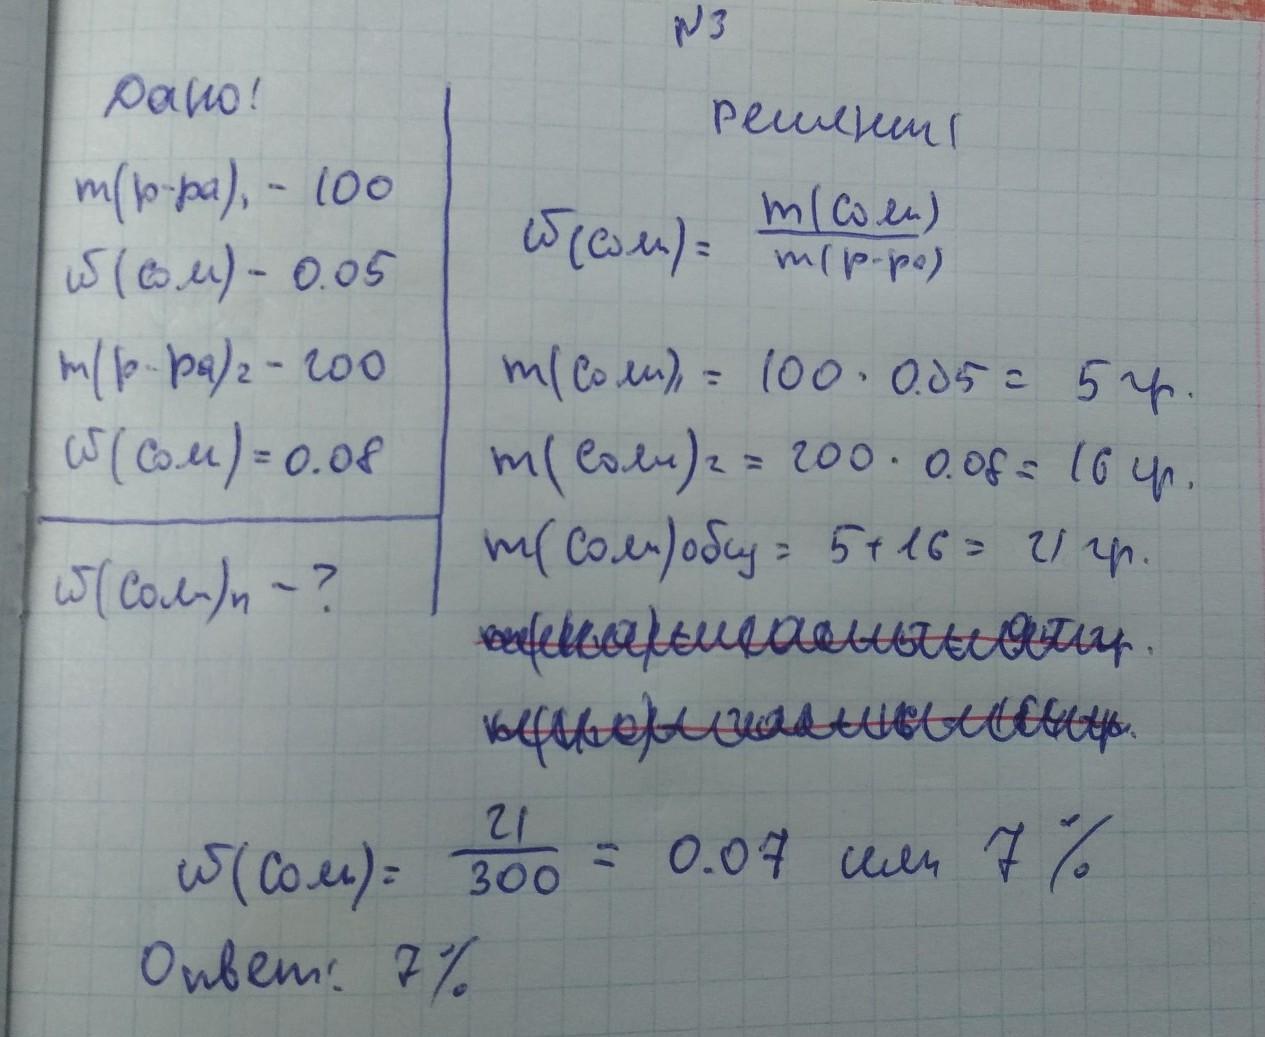 №3
Дано:
m(р-ра)₁ - 100
ω(соли) - 0.05
m(р-ра)₂ - 200
ω(соли) = 0.08
ω(соли)п - ?
Решени:
ω(соли) = m(соли) / m(р-ра)
m(соли)₁ = 100 · 0.05 = 5 гр.
m(соли)₂ = 200 · 0.08 = 16 гр.
m(соли)общ = 5 + 16 = 21 гр.
ω(соли) = 21/300 = 0.07 или 7%
Ответ: 7%